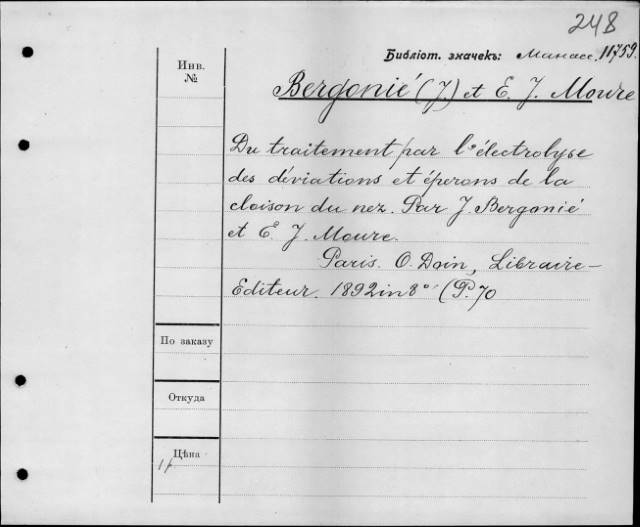 248
Библіот. значекъ: Манасс. 11759.
Инв.
№
Bergonié (J.) et E. J. Moure
Du traitement par l'électrolyse
des déviations et éperons de la
cloison du nez. Par J. Bergonié
et E. J. Moure.
Paris. O. Doin, Libraire-
Editeur. 1892 in 8° (P. 70
По заказу
Откуда
Цѣна